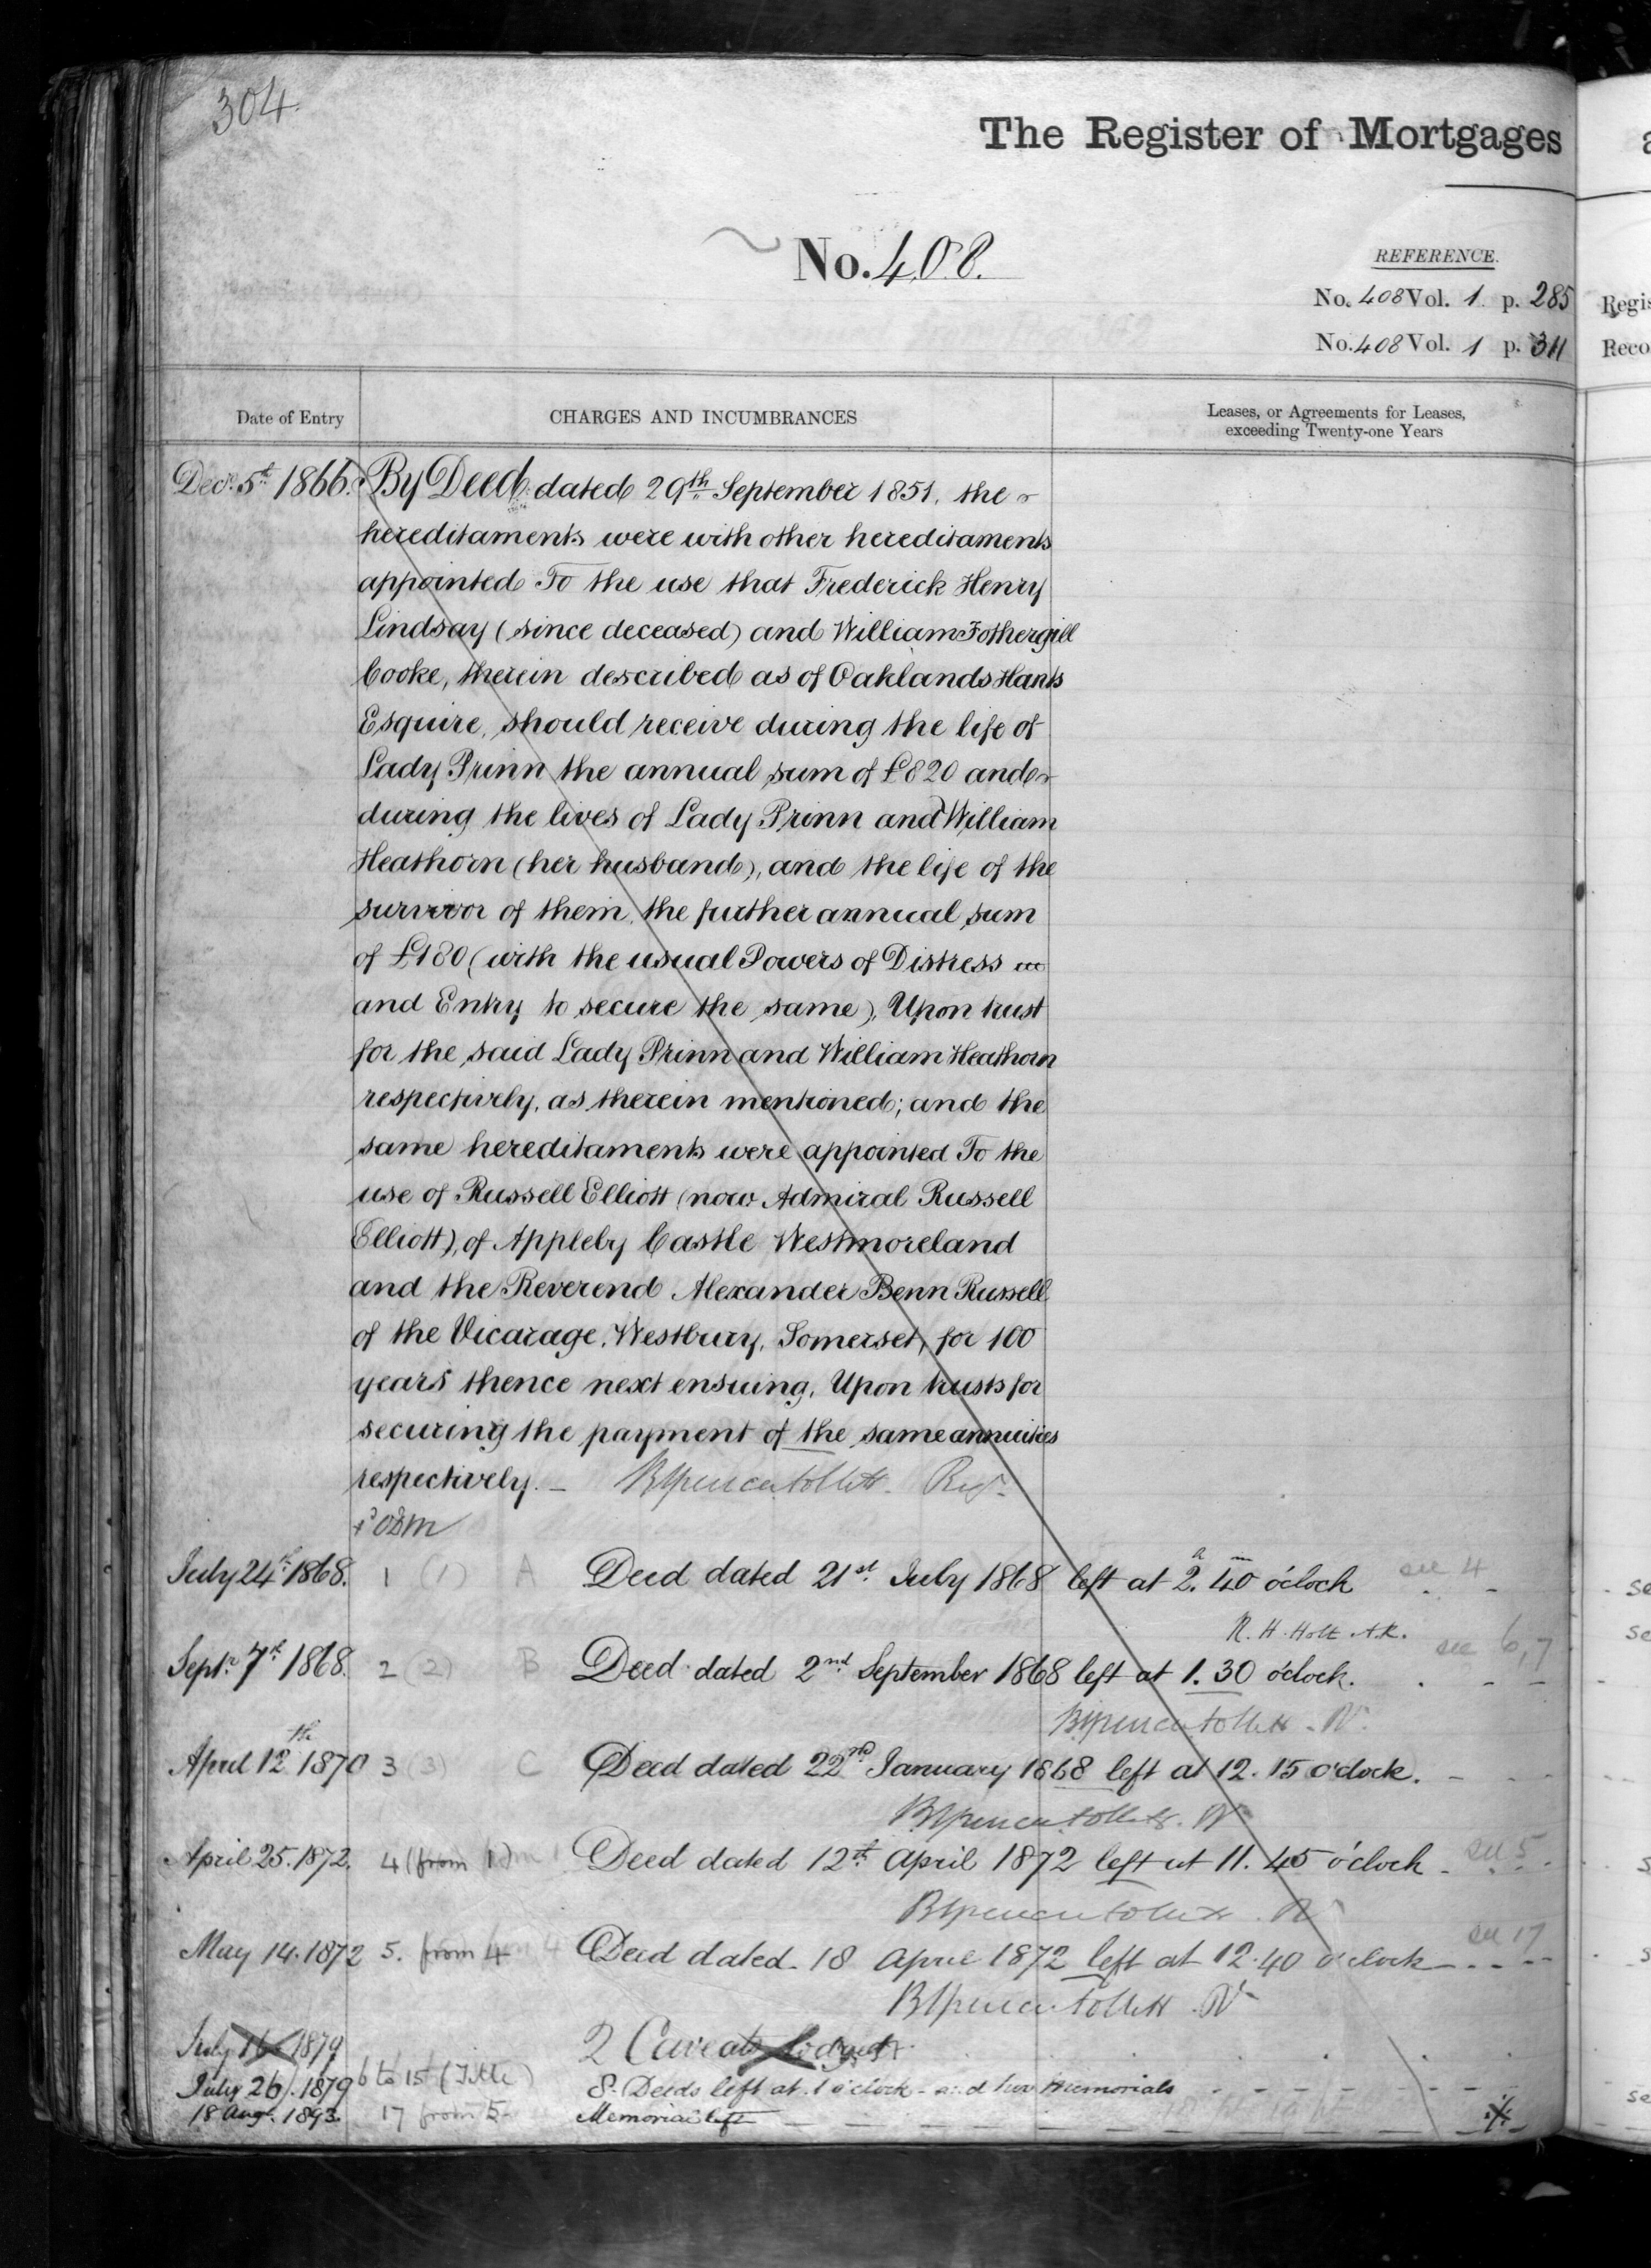 304.
The Register of Mortgages
No. 408.
REFERENCE.
No. 408 Vol. 1 p. 285
No. 408 Vol. 1 p. 311
Regis
Reco
Date of Entry
CHARGES AND INCUMBRANCES
Leases, or Agreements for Leases,
exceeding Twenty-one Years
Decr. 5th 1866. By Deed dated 29th September 1851, the
hereditaments were with other hereditaments
appointed To the use that Frederick Henry
Lindsay (since deceased) and William Fothergill
Cooke, therein described as of Oaklands Hants
Esquire, should receive during the life of
Lady Prinn the annual sum of £820 and
during the lives of Lady Prinn and William
Heathorn (her husband), and the life of the
survivor of them, the further annual sum
of £180 (with the usual Powers of Distress
and Entry to secure the same), Upon trust
for the said Lady Prinn and William Heathorn
respectively, as therein mentioned; and the
same hereditaments were appointed To the
use of Russell Elliott (now Admiral Russell
Elliott), of Appleby Castle Westmoreland
and the Reverend Alexander Benn Russell
of the Vicarage, Westbury, Somerset, for 100
years thence next ensuing, Upon trusts for
securing the payment of the same annuities
respectively. —
July 24th 1868. 1 (1) A Deed dated 21st July 1868 left at 2h. 40m o'clock see 4
R. H. Holt A.R.
Septr. 7th 1868. 2 (2) B Deed dated 2nd September 1868 left at 1.30 o'clock. see 6, 7
April 12th 1870 3 (3) C Deed dated 22nd January 1868 left at 12.15 o'clock.
April 25. 1872. 4 (from 1) Deed dated 12th April 1872 left at 11.45 o'clock see 5
May 14. 1872 5. from 4 Deed dated 18 April 1872 left at 12.40 o'clock see 17
July 16 1879 2 Caveats lodged
July 26. 1879 6 to 15 (Title) 8. Deeds left at 1 o'clock - and two memorials
18 Augt. 1893. 17 from 5 Memorial left